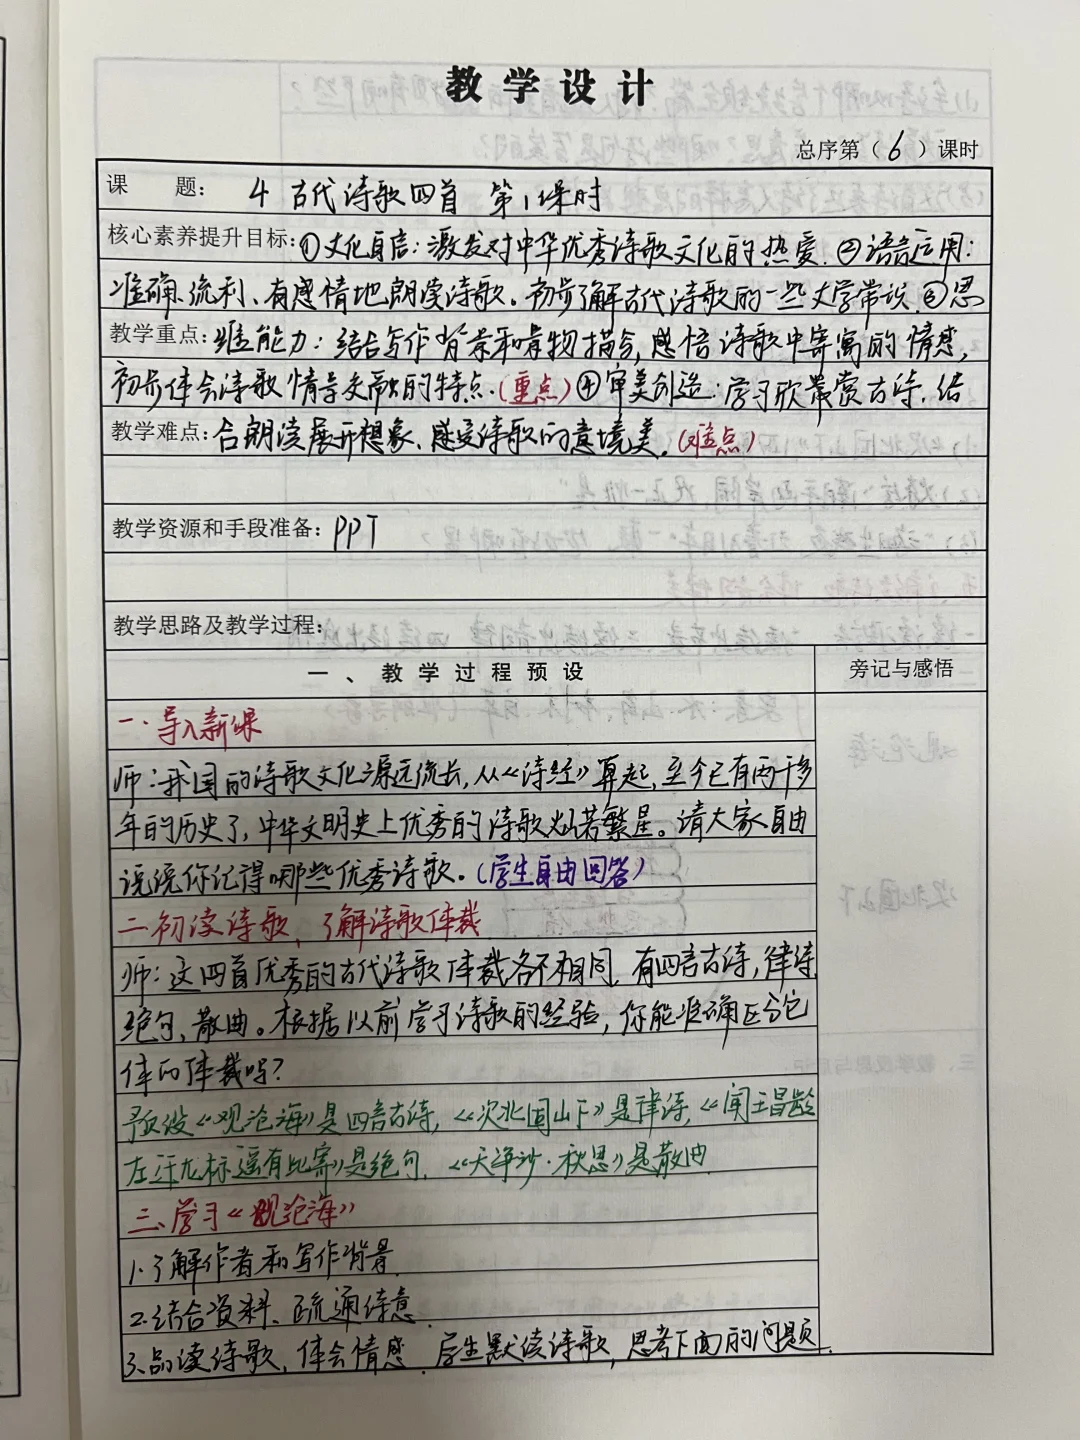 教学设计
总序第（6）课时
课 题： 4 古代诗歌四首 第1课时
核心素养提升目标：①文化自信：激发对中华优秀诗歌文化的热爱.②语言运用：
准确、流利、有感情地朗读诗歌。初步了解古代诗歌的一些文学常识.③思
教学重点：维能力：结合写作背景和景物描绘,感悟诗歌中寄寓的情感,
初步体会诗歌情景交融的特点.(重点)④审美创造：学习欣赏古诗.结
教学难点：合朗读展开想象、感受诗歌的意境美.(难点)
教学资源和手段准备：PPT
教学思路及教学过程：
一、教学过程预设 旁记与感悟
一.导入新课
师：我国的诗歌文化源远流长,从《诗经》算起,至今已有两千多
年的历史了,中华文明史上优秀的诗歌灿若繁星。请大家自由
说说你记得哪些优秀诗歌.(学生自由回答)
二.初读诗歌、了解诗歌体裁
师：这四首优秀的古代诗歌体裁各不相同,有四言古诗,律诗
绝句、散曲。根据以前学习诗歌的经验,你能准确区分它
体的体裁吗?
预设《观沧海》是四言古诗,《次北固山下》是律诗,《闻王昌龄
左迁龙标遥有此寄》是绝句,《天净沙·秋思》是散曲
三、学习《观沧海》
1.了解作者和写作背景
2.结合资料、疏通诗意.
3.品读诗歌,体会情感.学生默读诗歌,思考下面的问题.